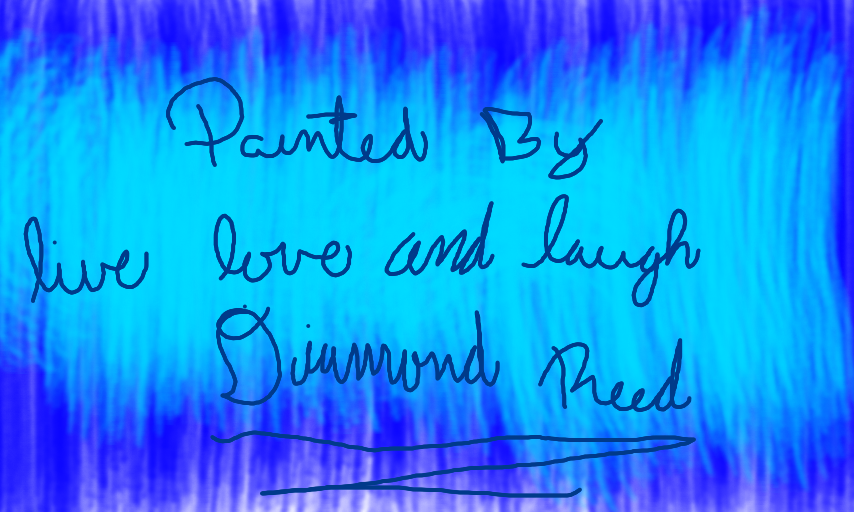 Painted By
live love and laugh
Diamond Reed